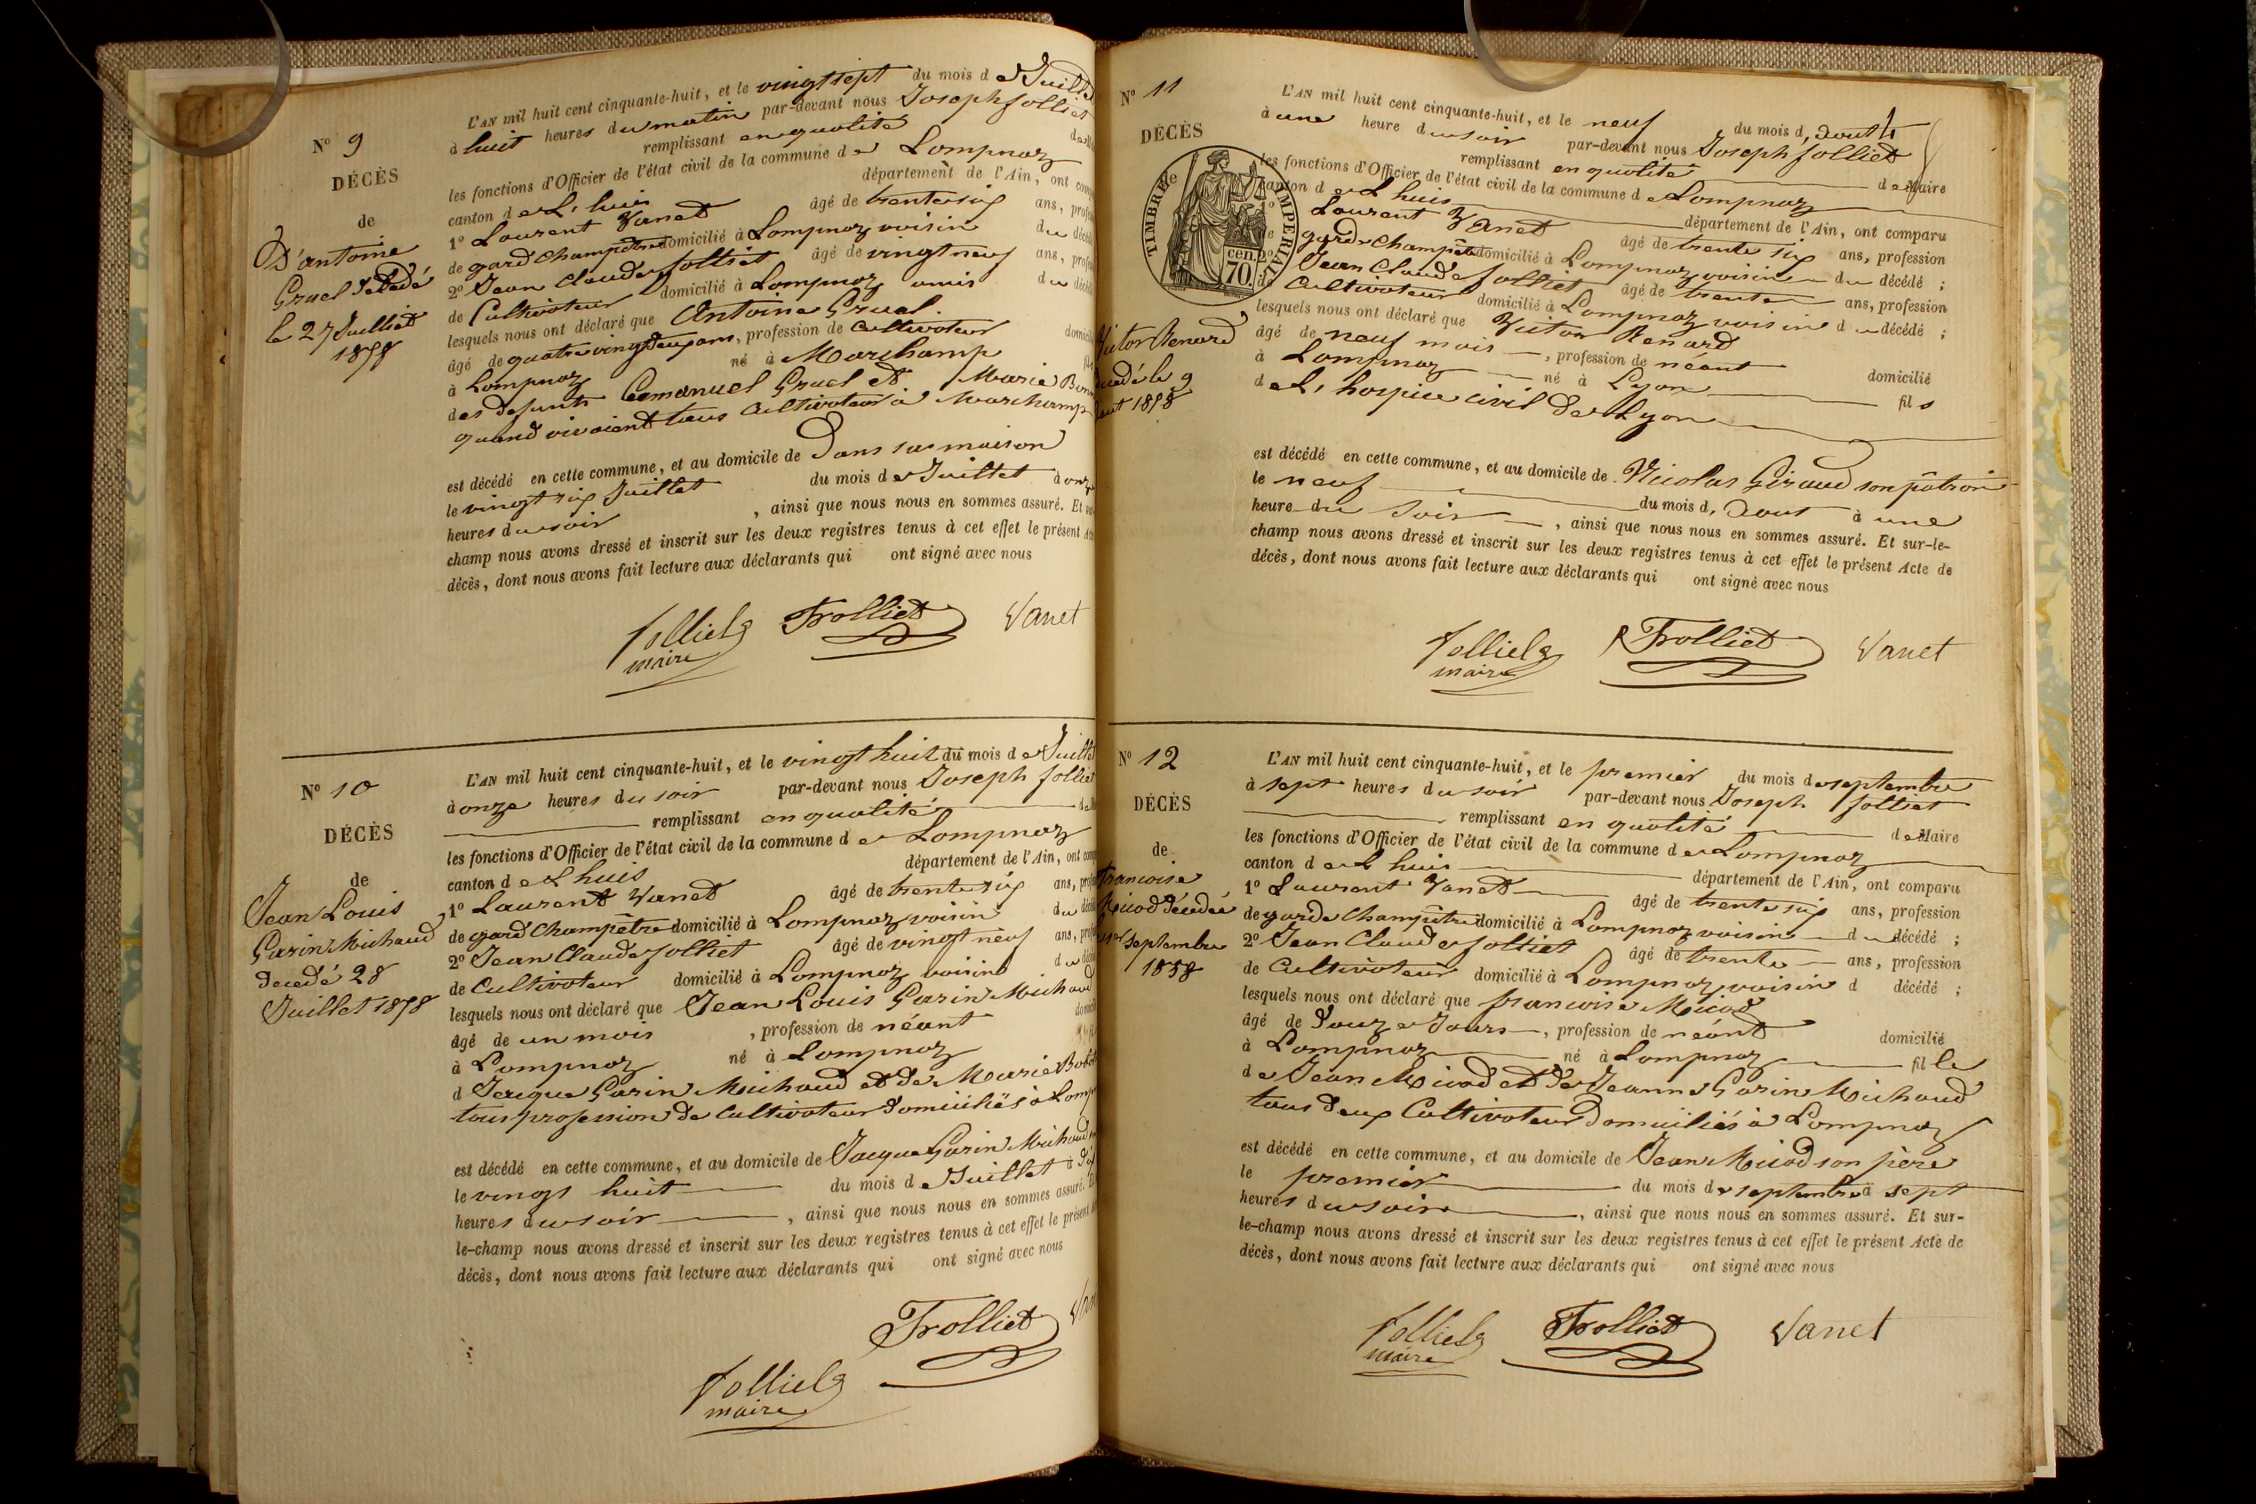 N° 9
DÉCÈS
de
D'antoine
Gruel Décédé
le 27 Juilliet
1858
L'AN mil huit cent cinquante-huit, et le vingt sept du mois de Juillet
à huit heures du matin par-devant nous Joseph Jolliet
remplissant en qualité de
les fonctions d'Officier de l'état civil de la commune de Lompnaz
canton de L'huis département de l'Ain, ont
1° Laurent Vanet âgé de trente six ans,
de gard Champêtre domicilié à Lompnaz voisin du
2° Jean Claude Jolliet âgé de vingt neuf ans,
de Cultivateur domicilié à Lompnaz amis du
lesquels nous ont déclaré que Antoine Gruel
âgé de quatre vingt deux ans, profession de Cultivateur
à Lompnaz né à Marchamp
des defunts Emanuel Gruel et Marie
quand vivaient tous Cultivateur à Marchamp
est décédé en cette commune, et au domicile de Dans sa maison
le vingt six Juillet du mois de Juillet à onze
heures du soir , ainsi que nous nous en sommes assuré. Et
champ nous avons dressé et inscrit sur les deux registres tenus à cet effet le présent
décès, dont nous avons fait lecture aux déclarants qui ont signé avec nous
Jolliet Trolliet Vanet
maire
N° 10
DÉCÈS
de
Jean Louis
Garin Michaud
Decedé 28
Juillet 1858
L'AN mil huit cent cinquante-huit, et le vingt huit du mois de Juillet
à onze heures du soir par-devant nous Joseph Jolliet
remplissant en qualité
les fonctions d'Officier de l'état civil de la commune de Lompnaz
canton de L huis département de l'Ain, ont
1° Laurent Vanet âgé de trente six ans,
de gard Champêtre domicilié à Lompnaz voisin du
2° Jean Claude Jolliet âgé de vingt neuf ans,
de Cultivateur domicilié à Lompnaz voisin du
lesquels nous ont déclaré que Jean Louis Garin Michaud
âgé de un mois , profession de néant
à Lompnaz né à Lompnaz
d Jacque Garin Michaud et de Marie
tous profession de Cultivateur Domiciliés à
est décédé en cette commune, et au domicile de Jacque Garin Michaud
le vingt huit du mois de Juillet à
heures du soir , ainsi que nous nous en sommes assuré.
le-champ nous avons dressé et inscrit sur les deux registres tenus à cet effet le présent
décès, dont nous avons fait lecture aux déclarants qui ont signé avec nous
Trolliet
Jolliet
maire
N° 11
DÉCÈS
TIMBRE IMPERIAL
70 cen.
Victor Renard
9
1858
L'AN mil huit cent cinquante-huit, et le neuf du mois d, aout
à une heure du soir par-devant nous Joseph Jolliet
remplissant en qualité de Maire
les fonctions d'Officier de l'état civil de la commune de Lompnaz
canton de L huis département de l'Ain, ont comparu
Laurent Vanet âgé de trente six ans, profession
garde Champêtre domicilié à Lompnaz voisin du décédé ;
Jean Claude Jolliet âgé de trente ans, profession
Cultivateur domicilié à Lompnaz voisin du décédé ;
lesquels nous ont déclaré que Victor Renard
âgé de neuf mois , profession de néant domicilié
à Lompnaz né à Lyon fils
de L'hospice civil de Lyon
est décédé en cette commune, et au domicile de Nicolas Giraud son pâtron
le neuf du mois d, Aout à une
heure du Soir , ainsi que nous nous en sommes assuré. Et sur-le-
champ nous avons dressé et inscrit sur les deux registres tenus à cet effet le présent Acte de
décès, dont nous avons fait lecture aux déclarants qui ont signé avec nous
Jolliet Trolliet Vanet
maire
N° 12
DÉCÈS
de
francoise
Micod Décédée
septembre
1858
L'AN mil huit cent cinquante-huit, et le premier du mois de septembre
à sept heures du soir par-devant nous Joseph Jolliet
remplissant en qualité de Maire
les fonctions d'Officier de l'état civil de la commune de Lompnaz
canton de L huis département de l'Ain, ont comparu
1° Laurent Vanet âgé de trente six ans, profession
de garde Champêtre domicilié à Lompnaz voisin du décédé ;
2° Jean Claude Jolliet âgé de trente ans, profession
de Cultivateur domicilié à Lompnaz voisin d décédé ;
lesquels nous ont déclaré que francoise Micod
âgé de Douze Jours , profession de néant domicilié
à Lompnaz né à Lompnaz fille
de Jean Micod et de Jeanne Garin Michaud
tous deux Cultivateur Domiciliés à Lompnaz
est décédé en cette commune, et au domicile de Jean Micod son père
le premier du mois de septembre à sept
heures du soir , ainsi que nous nous en sommes assuré. Et sur-
le-champ nous avons dressé et inscrit sur les deux registres tenus à cet effet le présent Acte de
décès, dont nous avons fait lecture aux déclarants qui ont signé avec nous
Jolliet Trolliet Vanet
maire